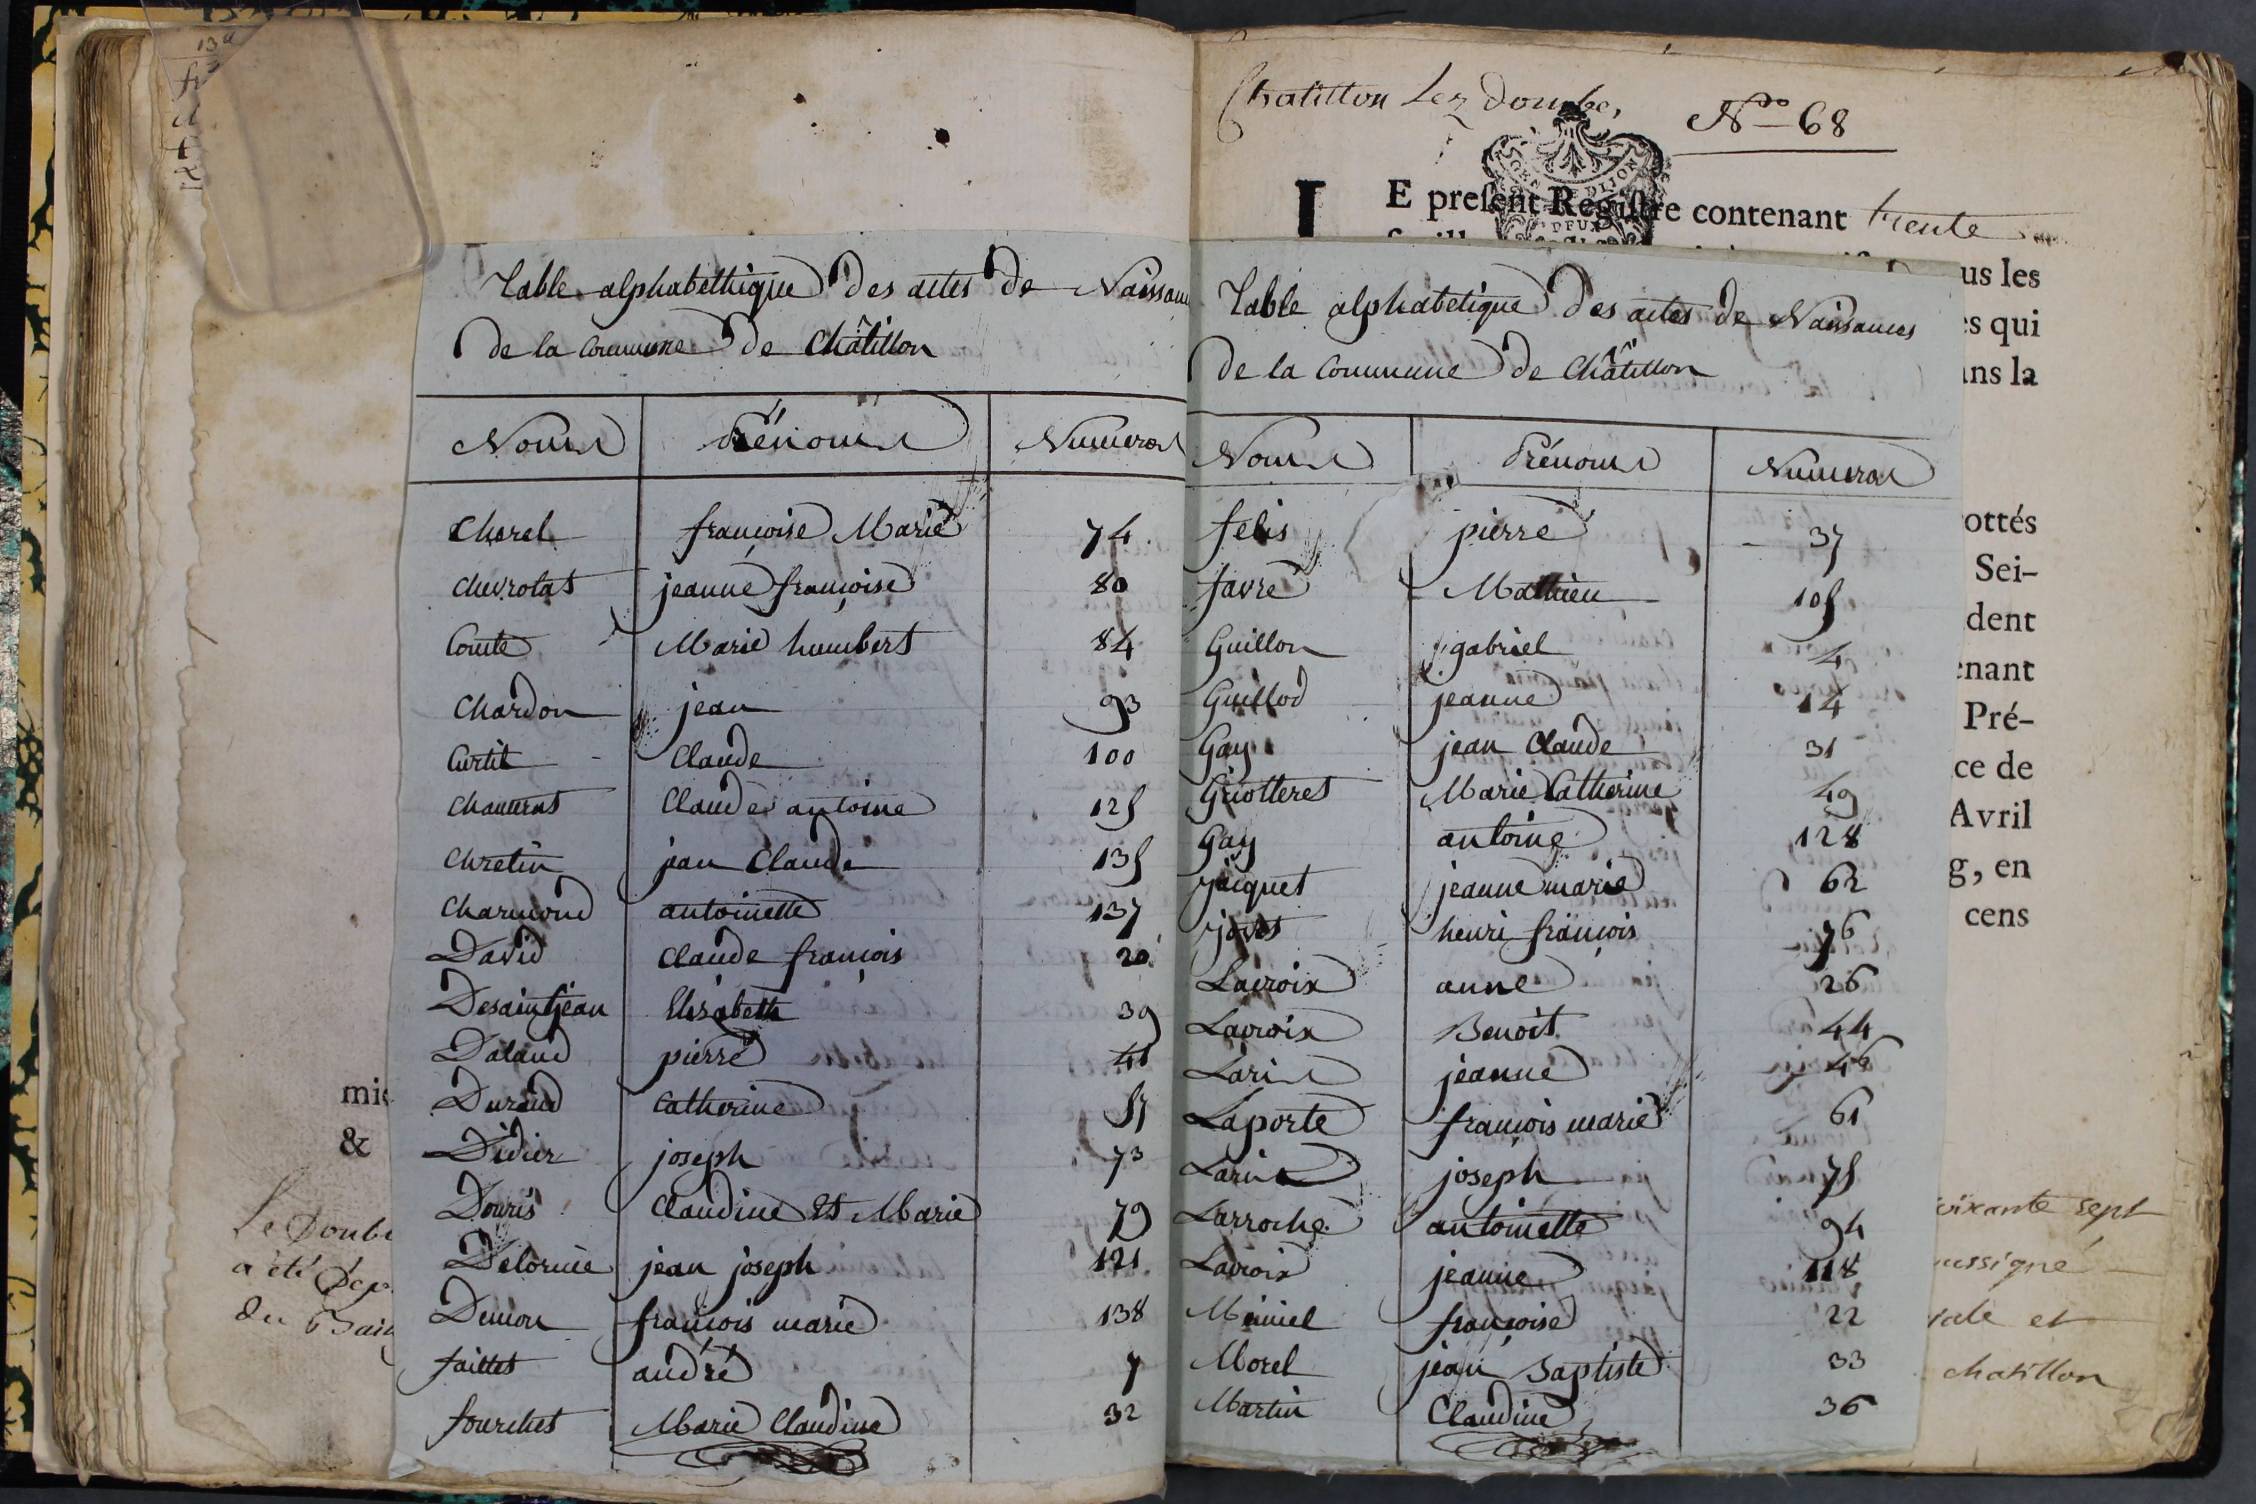 Table alphabéthique des actes de Naissan
de la Commune de Châtillon
Noms Prénoms Numeros
Charel françoise Marie 74
Chevrolat jeanne françoise 80
Comte Marie humbert 84
Chardon jean 93
Curtil Claude 100
Claude antoine 125
Chretin jean Claude 135
Charmond antoinette 137
David Claude françois 20
Desaintjean Elisabeth 39
Daland pierre 41
Durand Catherine 57
Didier joseph 73
Douris Claudine Et Marie 79
Delorme jean joseph 121
Dumon françois marie 138
faillet andré 7
fourchet Marie Claudine 32
mi
&
Le Doub
a été Dép
du Bail
Chatillon Lez Dombe,
N.o 68
LE preſent Regiſtre contenant trente
us les
es qui
ans la
Table alphabétique des actes de Naissances
de la Commune de Châtillon
Noms Prénoms Numeros
felis pierre 37
favre Mathieu 105
Guillon gabriel 4
Guillod jeanne 14
Gay jean Claude 31
Griotteret Marie Catherine 49
Gay antoine 128
jacquet jeanne marie 62
henri françois 76
Lacroix anne 26
Lacroix Benoit 44
Laris jeanne 46
Laporte françois marie 61
Laris joseph 75
Larroche antoinette 94
Lacroix jeanne 118
Miniel françoise 22
Morel jean Baptiste 33
Martin Claudine 36
ottés
Sei-
dent
enant
Pré-
ce de
Avril
g, en
cens
oixante sept
ussigné
yale et
chatillon